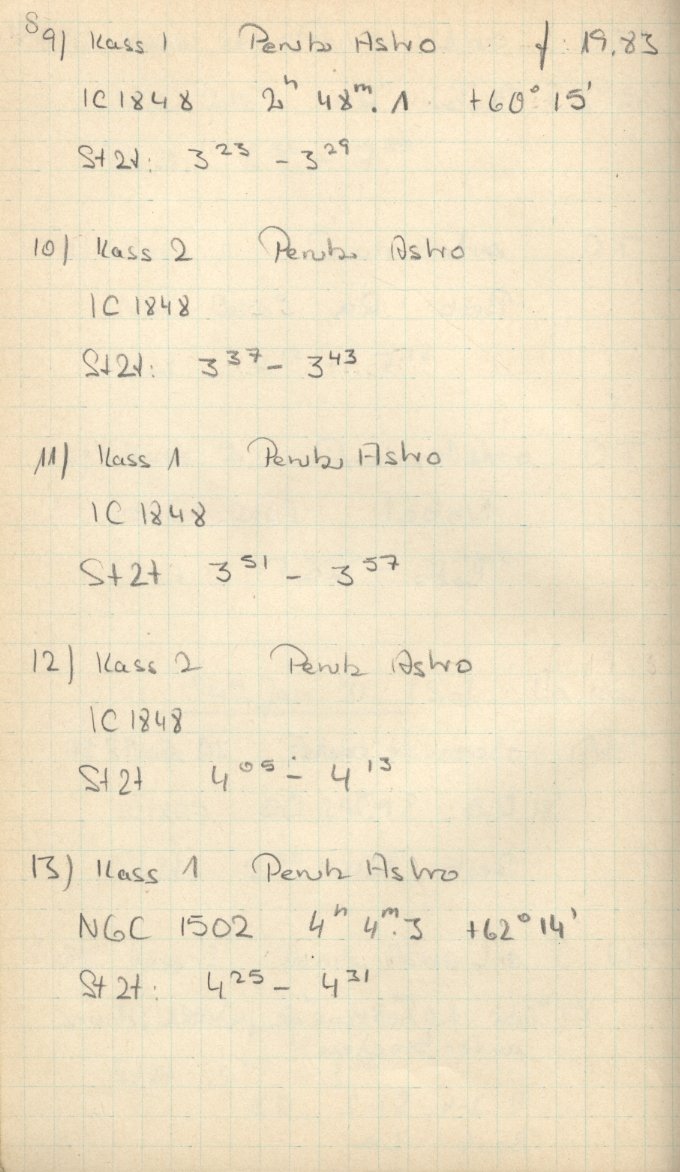 8
9) Kass 1 Perutz Astro f 19.83
IC 1848 2ʰ 48ᵐ.1 +60° 15'
St 2t: 3²³ – 3²⁹
10) Kass 2 Perutz Astro
IC 1848
St 2t: 3³⁷ – 3⁴³
11) Kass 1 Perutz Astro
IC 1848
St 2t 3⁵¹ – 3⁵⁷
12) Kass 2 Perutz Astro
IC 1848
St 2t 4⁰⁵ – 4¹³
13) Kass 1 Perutz Astro
NGC 1502 4ʰ 4ᵐ.3 +62° 14'
St 2t: 4²⁵ – 4³¹